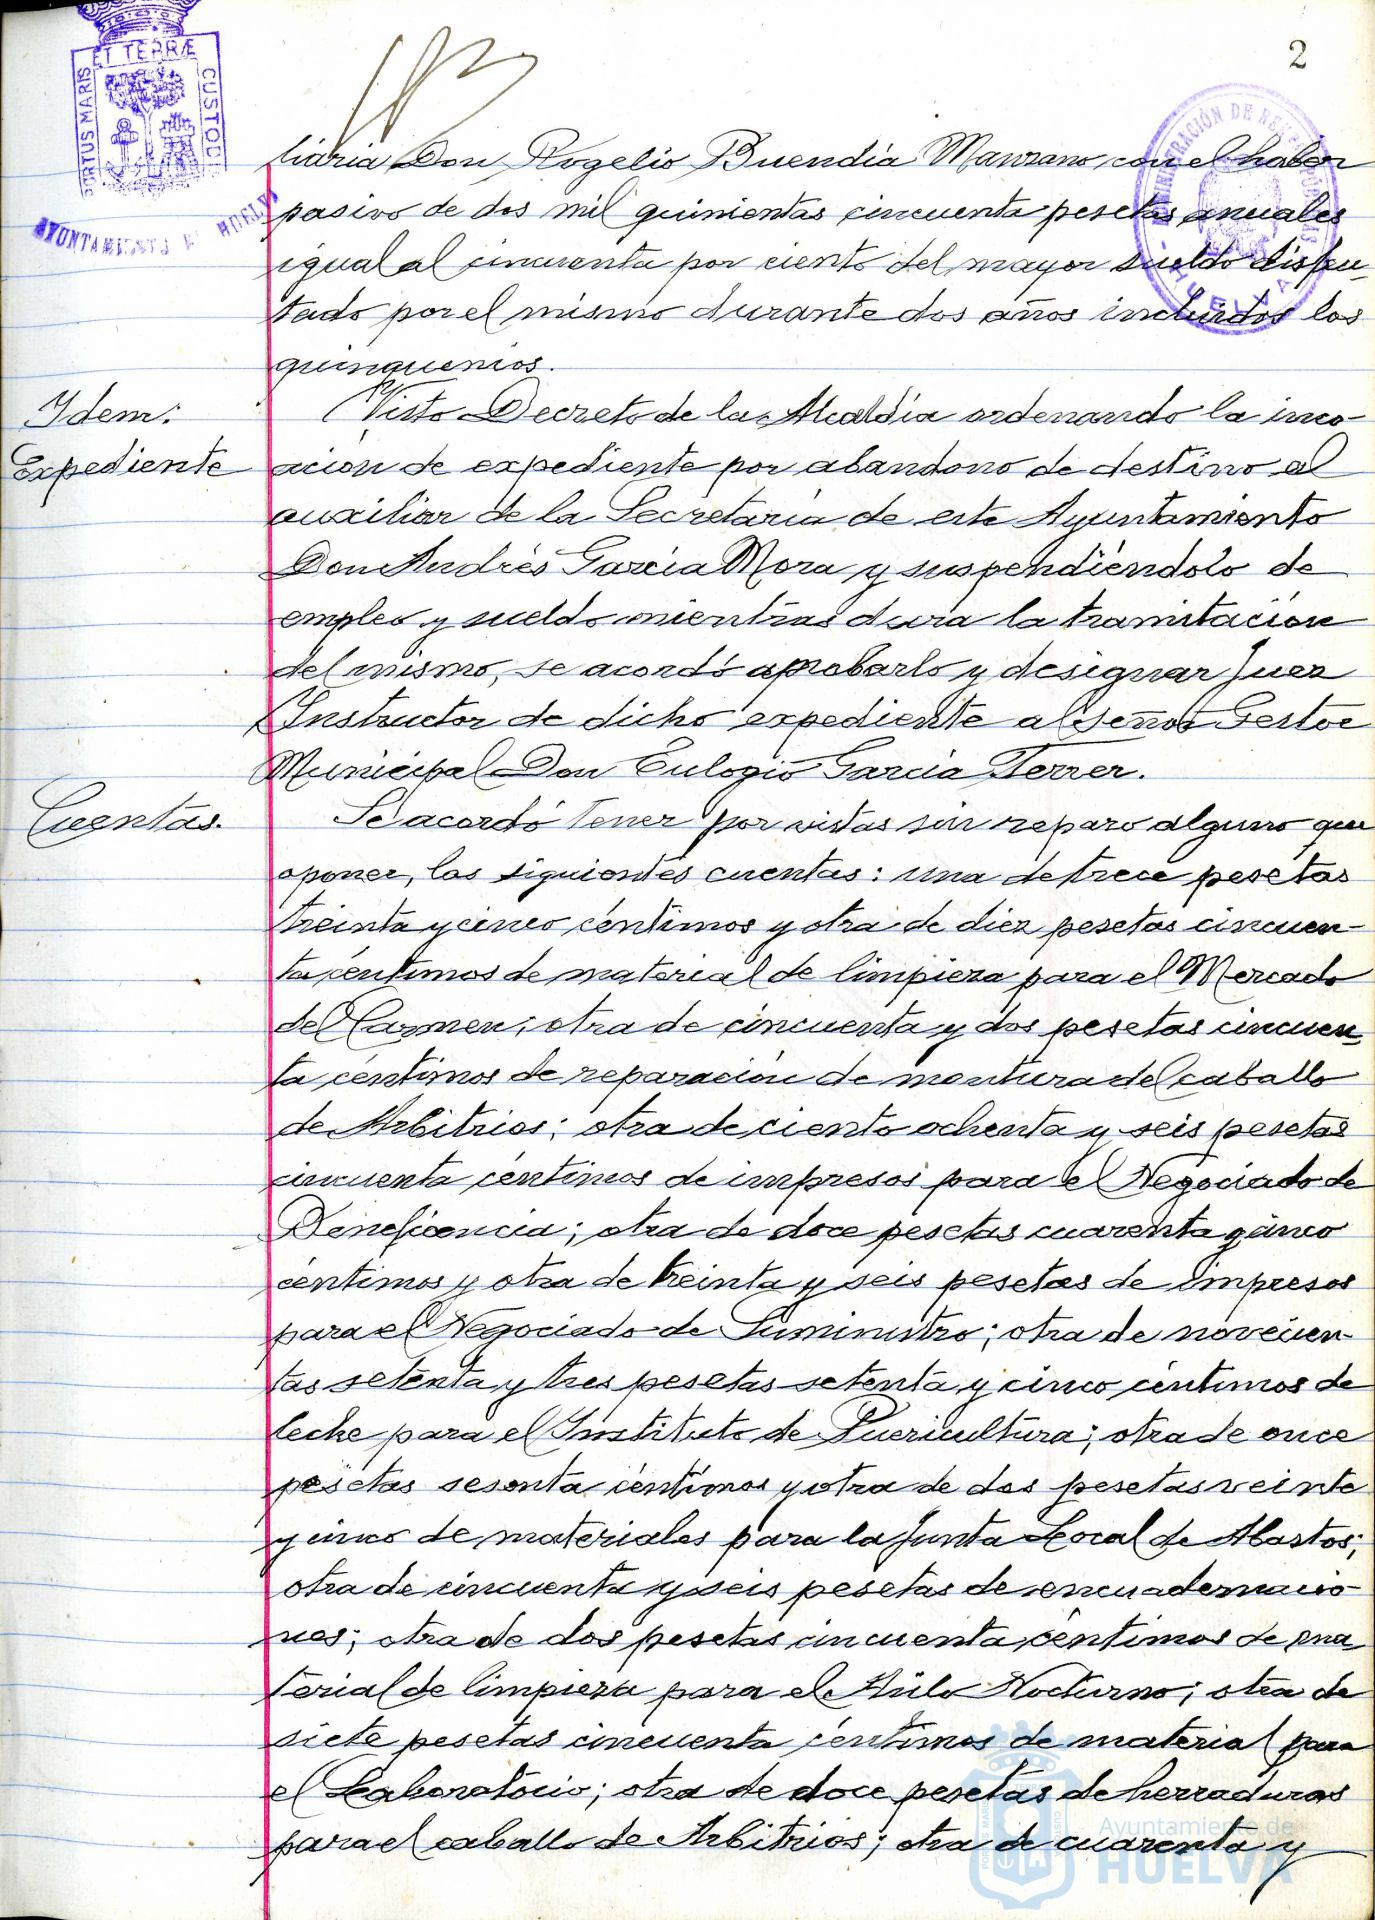 2
ET TERRÆ
PORTUS MARIS
CUSTODI
AYUNTAMIENTO DE HUELVA
ADMINISTRACIÓN DE RENTAS PÚBLICAS
HUELVA
liaria Don Rogelio Buendía Manzano, con el haber
pasivo de dos mil quinientas cincuenta pesetas anuales
igual al cincuenta por ciento del mayor sueldo disfru-
tado por el mismo durante dos años incluidos los
quinquenios.
Idem:
Expediente
Visto Decreto de la Alcaldía ordenando la inco-
ación de expediente por abandono de destino al
auxiliar de la Secretaría de este Ayuntamiento
Don Andrés García Mora y suspendiéndolo de
empleo y sueldo mientras dura la tramitación
del mismo, se acordó aprobarlo y designar Juez
Instructor de dicho expediente al Señor Gestor
Municipal Don Eulogio García Ferrer.
Cuentas.
Se acordó tener por vistas sin reparo alguno que
oponer, las siguientes cuentas: una de trece pesetas
treinta y cinco céntimos y otra de diez pesetas cincuen-
ta céntimos de material de limpieza para el Mercado
del Carmen; otra de cincuenta y dos pesetas cincuen-
ta céntimos de reparación de montura del caballo
de Arbitrios; otra de ciento ochenta y seis pesetas
cincuenta céntimos de impresos para el Negociado de
Beneficencia; otra de doce pesetas cuarenta y cinco
céntimos y otra de treinta y seis pesetas de impresos
para el Negociado de Suministro; otra de novecien-
tas setenta y tres pesetas setenta y cinco céntimos de
leche para el Instituto de Puericultura; otra de once
pesetas sesenta céntimos y otra de dos pesetas veinte
y cinco de materiales para la Junta Local de Abastos;
otra de cincuenta y seis pesetas de encuadernacio-
nes; otra de dos pesetas cincuenta céntimos de ma
terial de limpieza para el Asilo Nocturno; otra de
siete pesetas cincuenta céntimos de material para
el Laboratorio; otra de doce pesetas de herraduras
para el caballo de Arbitrios; otra de cuarenta y
Ayuntamiento de
HUELVA